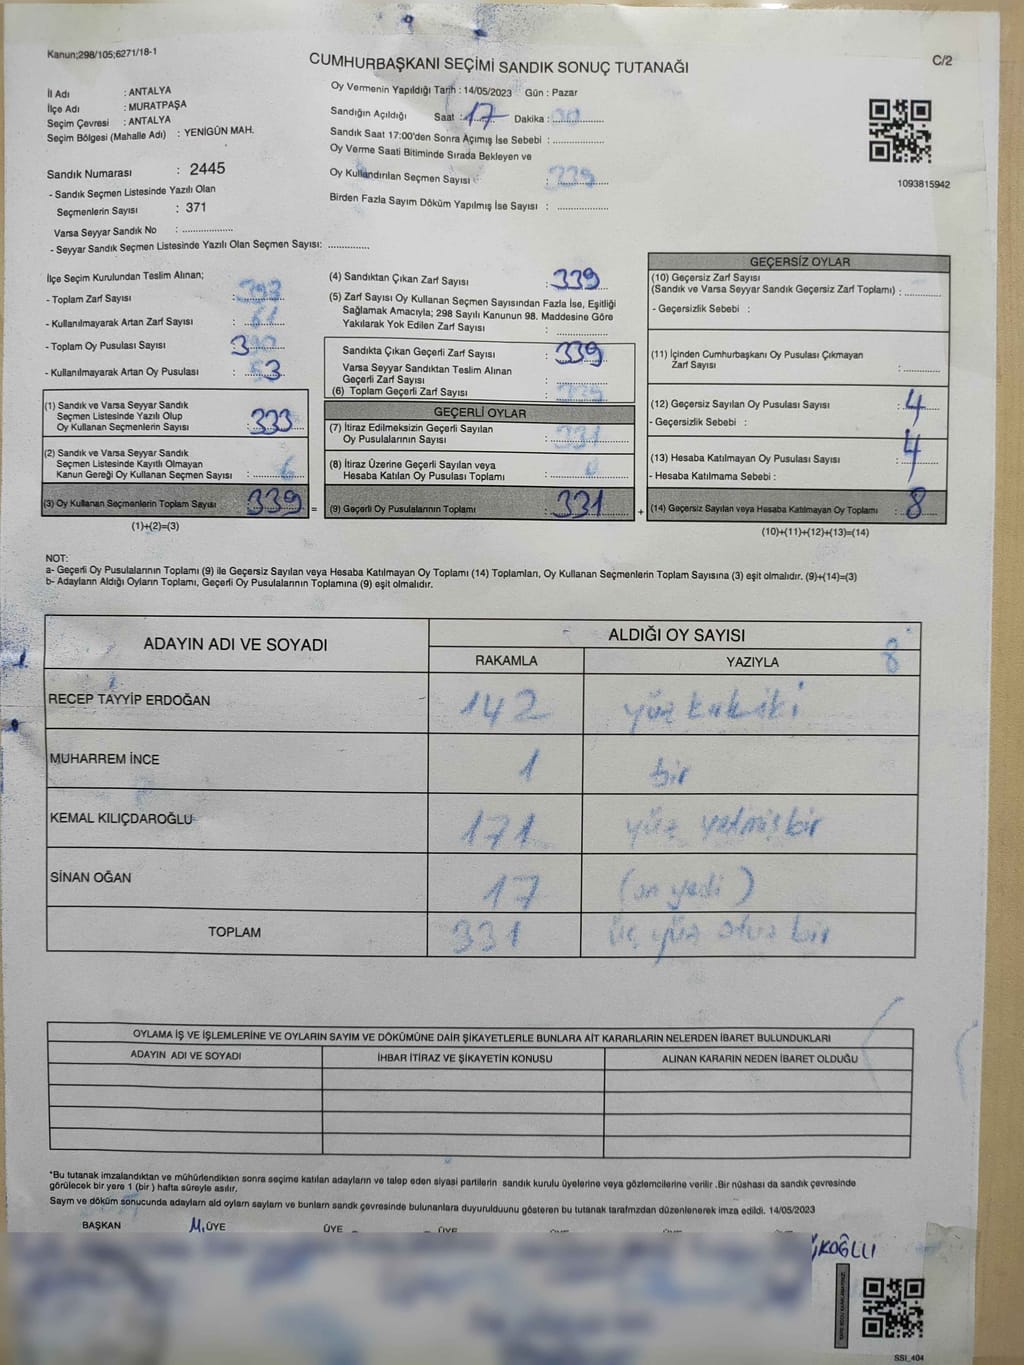 Kanun;298/105;6271/18-1
CUMHURBAŞKANI SEÇİMİ SANDIK SONUÇ TUTANAĞI
C/2
İl Adı : ANTALYA
İlçe Adı : MURATPAŞA
Seçim Çevresi : ANTALYA
Seçim Bölgesi (Mahalle Adı) : YENİGÜN MAH.
Sandık Numarası : 2445
- Sandık Seçmen Listesinde Yazılı Olan
Seçmenlerin Sayısı : 371
Varsa Seyyar Sandık No : ..................
- Seyyar Sandık Seçmen Listesinde Yazılı Olan Seçmen Sayısı: ...............
Oy Vermenin Yapıldığı Tarih : 14/05/2023 Gün : Pazar
Sandığın Açıldığı Saat : 17 Dakika : 00
Sandık Saat 17:00'den Sonra Açımış İse Sebebi : ..................
Oy Verme Saati Bitiminde Sırada Bekleyen ve
Oy Kullandırılan Seçmen Sayısı : 339
Birden Fazla Sayım Döküm Yapılmış İse Sayısı : ..................
1093815942
İlçe Seçim Kurulundan Teslim Alınan;
- Toplam Zarf Sayısı : 393
- Kullanılmayarak Artan Zarf Sayısı :
- Toplam Oy Pusulası Sayısı :
- Kullanılmayarak Artan Oy Pusulası :
(1) Sandık ve Varsa Seyyar Sandık
Seçmen Listesinde Yazılı Olup
Oy Kullanan Seçmenlerin Sayısı : 333
(2) Sandık ve Varsa Seyyar Sandık
Seçmen Listesinde Kayıtlı Olmayan
Kanun Gereği Oy Kullanan Seçmen Sayısı : 6
(3) Oy Kullanan Seçmenlerin Toplam Sayısı : 339
(1)+(2)=(3)
(4) Sandıktan Çıkan Zarf Sayısı : 339
(5) Zarf Sayısı Oy Kullanan Seçmen Sayısından Fazla İse, Eşitliği
Sağlamak Amacıyla; 298 Sayılı Kanunun 98. Maddesine Göre
Yakılarak Yok Edilen Zarf Sayısı : ..................
Sandıkta Çıkan Geçerli Zarf Sayısı : 339
Varsa Seyyar Sandıktan Teslim Alınan
Geçerli Zarf Sayısı : ..................
(6) Toplam Geçerli Zarf Sayısı : 339
GEÇERLİ OYLAR
(7) İtiraz Edilmeksizin Geçerli Sayılan
Oy Pusulalarının Sayısı : 331
(8) İtiraz Üzerine Geçerli Sayılan veya
Hesaba Katılan Oy Pusulası Toplamı : 0
= (9) Geçerli Oy Pusulalarının Toplamı : 331 +
GEÇERSİZ OYLAR
(10) Geçersiz Zarf Sayısı
(Sandık ve Varsa Seyyar Sandık Geçersiz Zarf Toplamı) : ...............
- Geçersizlik Sebebi :
(11) İçinden Cumhurbaşkanı Oy Pusulası Çıkmayan
Zarf Sayısı : ...............
(12) Geçersiz Sayılan Oy Pusulası Sayısı : 4
- Geçersizlik Sebebi :
(13) Hesaba Katılmayan Oy Pusulası Sayısı : 4
- Hesaba Katılmama Sebebi :
(14) Geçersiz Sayılan veya Hesaba Katılmayan Oy Toplamı : 8
(10)+(11)+(12)+(13)=(14)
NOT:
a- Geçerli Oy Pusulalarının Toplamı (9) ile Geçersiz Sayılan veya Hesaba Katılmayan Oy Toplamı (14) Toplamları, Oy Kullanan Seçmenlerin Toplam Sayısına (3) eşit olmalıdır. (9)+(14)=(3)
b- Adayların Aldığı Oyların Toplamı, Geçerli Oy Pusulalarının Toplamına (9) eşit olmalıdır.
ADAYIN ADI VE SOYADI ALDIĞI OY SAYISI
RAKAMLA YAZIYLA 8
RECEP TAYYİP ERDOĞAN 142 yüz kırk iki
MUHARREM İNCE 1 bir
KEMAL KILIÇDAROĞLU 171 yüz yetmiş bir
SİNAN OĞAN 17 (on yedi)
TOPLAM 331 üç yüz otuz bir
OYLAMA İŞ VE İŞLEMLERİNE VE OYLARIN SAYIM VE DÖKÜMÜNE DAİR ŞİKAYETLERLE BUNLARA AİT KARARLARIN NELERDEN İBARET BULUNDUKLARI
ADAYIN ADI VE SOYADI İHBAR İTİRAZ VE ŞİKAYETİN KONUSU ALINAN KARARIN NEDEN İBARET OLDUĞU
*Bu tutanak imzalandıktan ve mühürlendikten sonra seçime katılan adayların ve talep eden siyasi partilerin sandık kurulu üyelerine veya gözlemcilerine verilir .Bir nüshası da sandık çevresinde
görülecek bir yere 1 (bir ) hafta süreyle asılır.
Sayım ve döküm sonucunda adayların ald oyların sayları ve bunların sandık çevresinde bulunanlara duyurulduunu gösteren bu tutanak tarafmzdan düzenlenerek imza edildi. 14/05/2023
BAŞKAN M. ÜYE ÜYE ÜYE
SSI_404